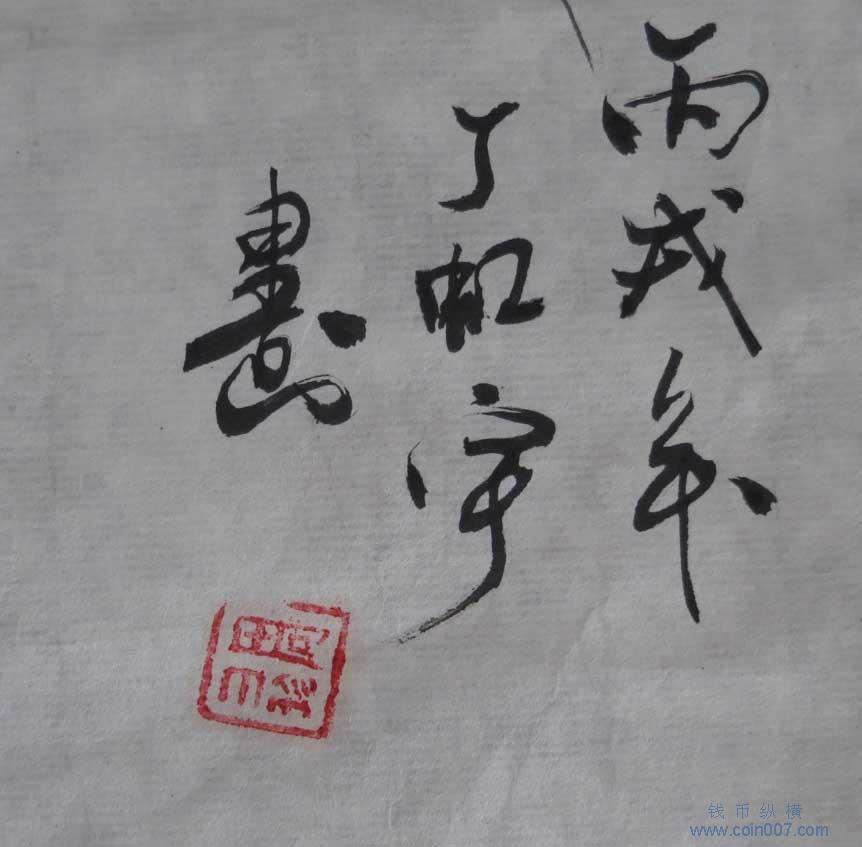 丙戌年
丁虹宇
畫
钱币纵横
www.coin007.com